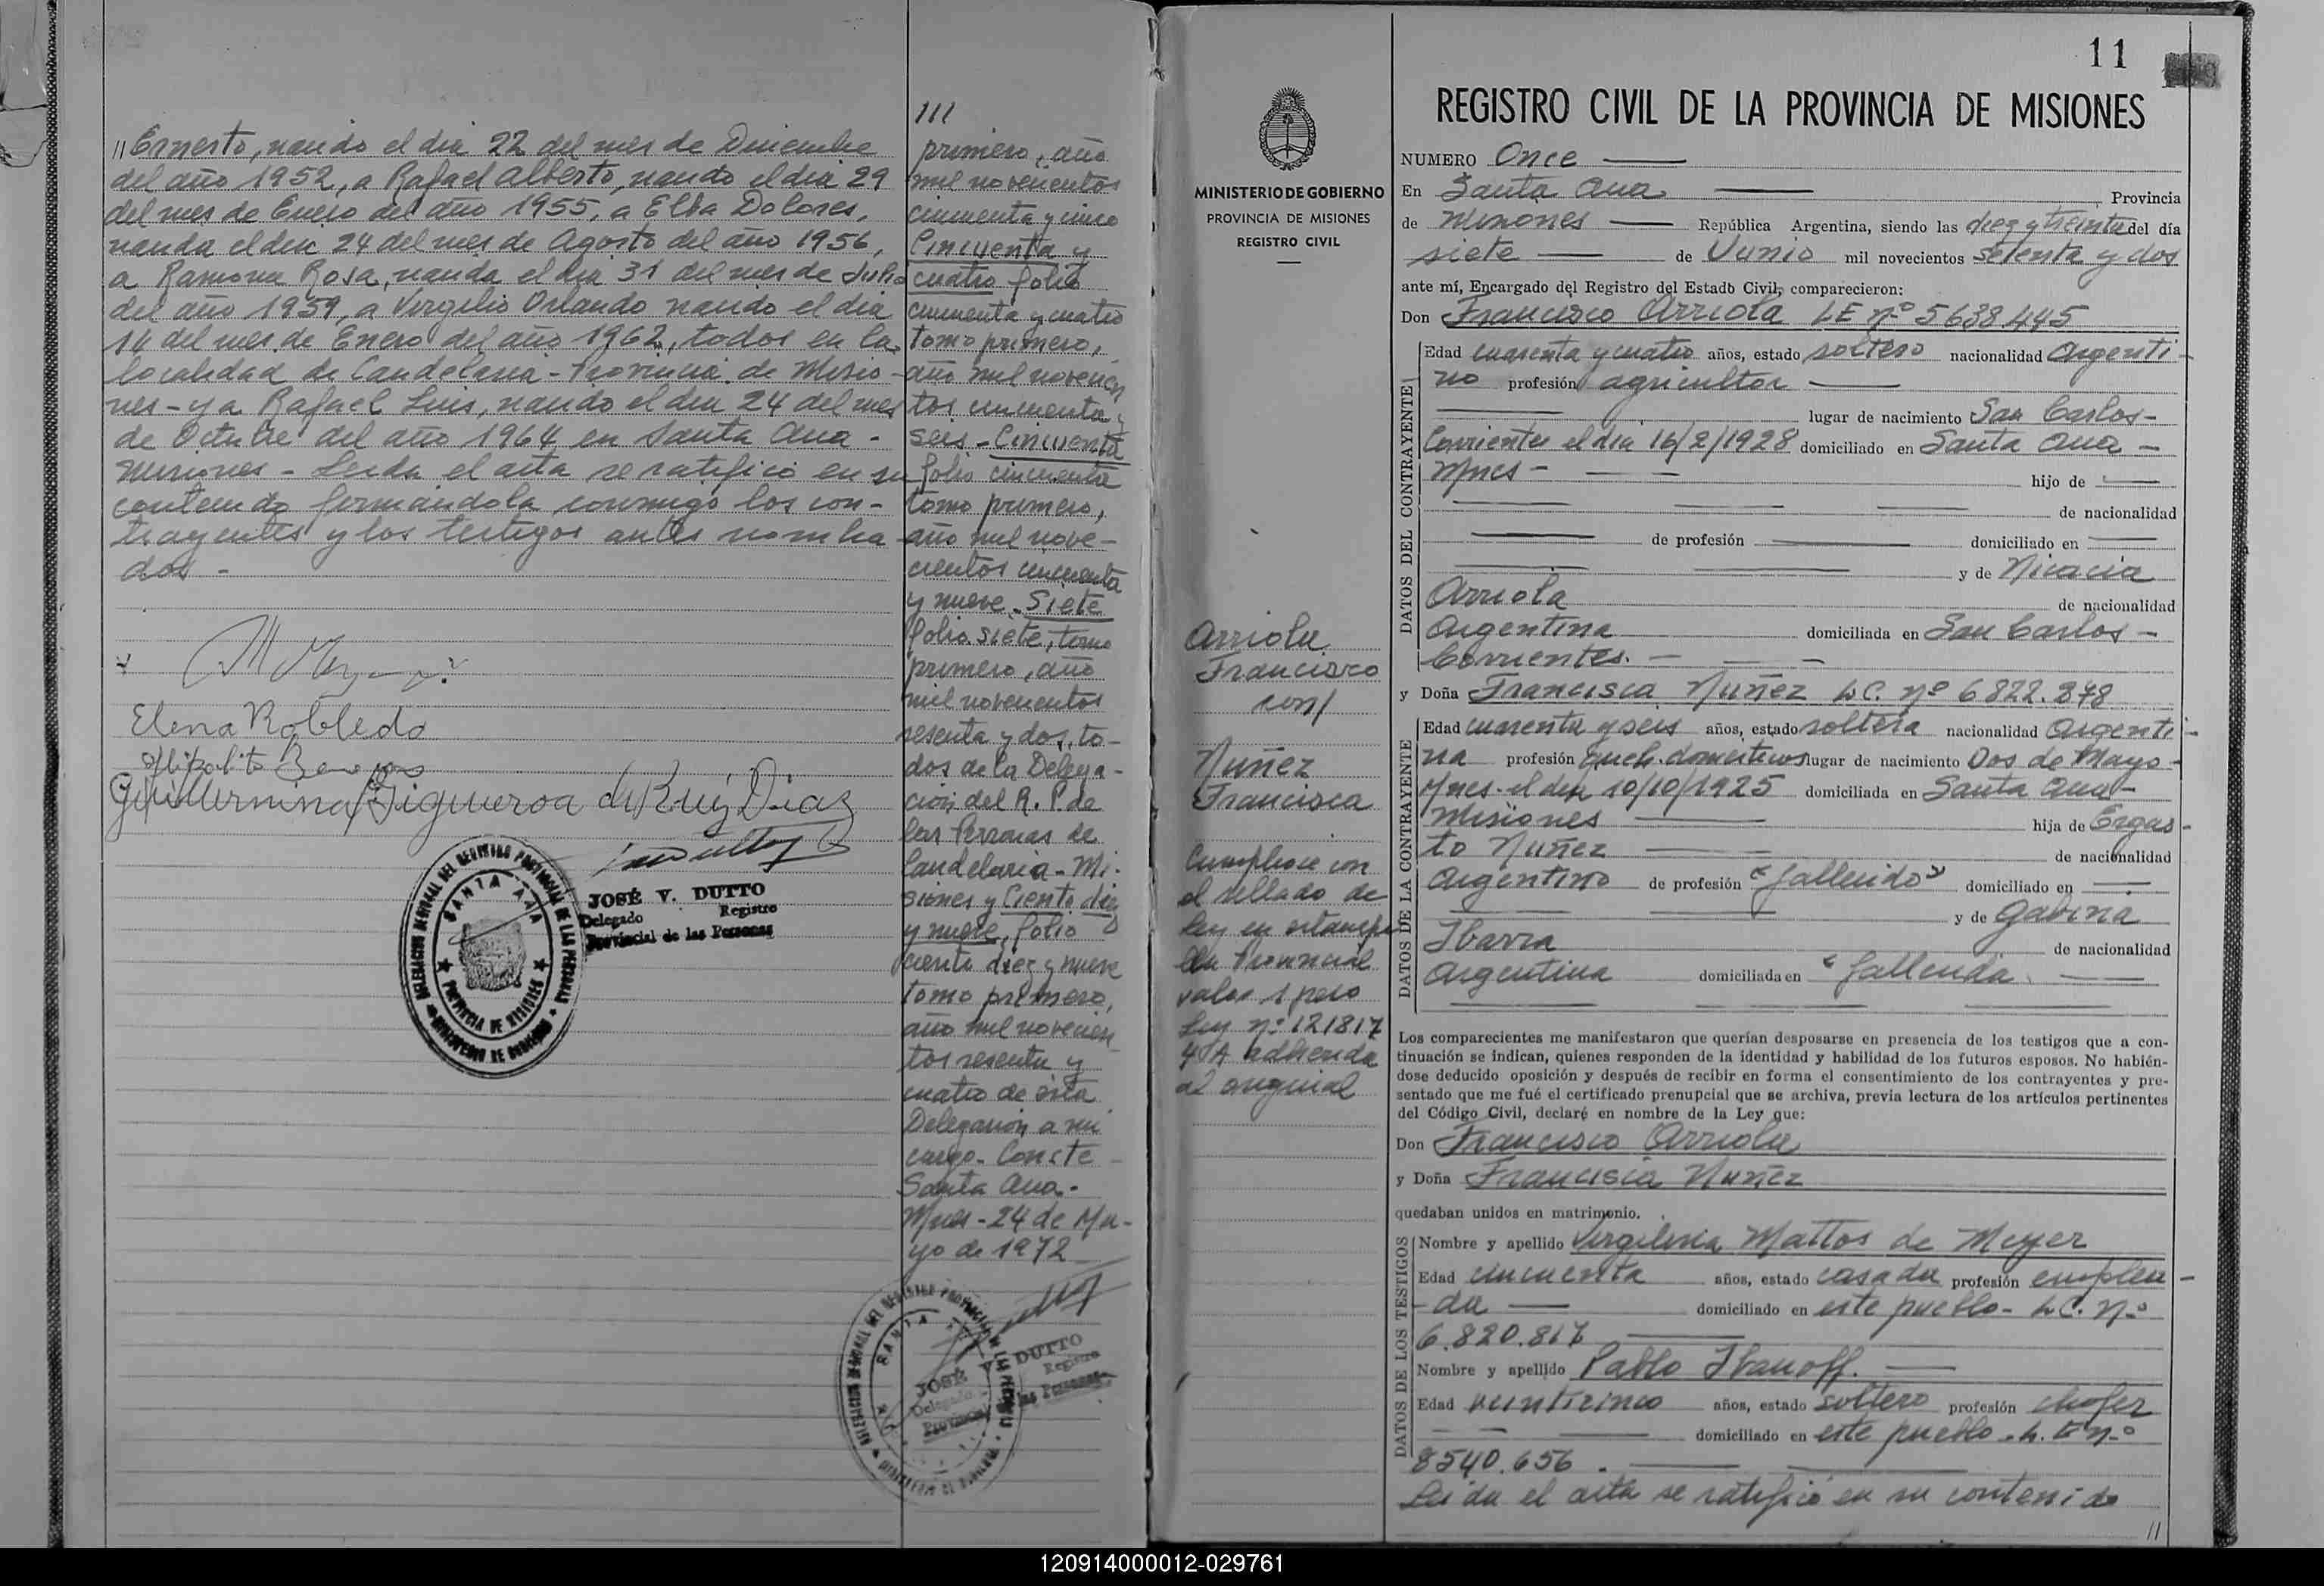 // Ernesto, nacido el dia 22 del mes de Diciembre
del año 1952, a Rafael Alberto, nacido el dia 29
del mes de Enero del año 1955, a Elba Dolores,
nacida el dia 24 del mes de Agosto del año 1956,
a Ramona Rosa, nacida el dia 31 del mes de Julio
del año 1959, a Virgilio Orlando nacido el dia
14 del mes de Enero del año 1962, todos en la
localidad de Candelaria - Provincia de Misio-
nes - y a Rafael Luis, nacido el dia 24 del mes
de Octubre del año 1964 en Santa Ana -
Misiones - Leida el acta se ratificó en su
contenido firmandola conmigo los con-
trayentes y los testigos antes nombra
dos -
Elena Robledo
Guillermina Figueroa de Ruiz Diaz
JOSÉ V. DUTTO
Delegado Registro
Provincial de las Personas
DELEGACION DEL REGISTRO PROVINCIAL DE LAS PERSONAS
SANTA ANA
PROVINCIA DE MISIONES
MINISTERIO DE GOBIERNO
///
primero, año
mil novecientos
cincuenta y cinco
Cincuenta y
cuatro folio
cincuenta y cuatro
tomo primero,
año mil novecien
tos cincuenta y
seis - Cincuenta
folio cincuenta
tomo primero,
año mil nove-
cientos cincuenta
y nueve - Siete
folio siete, tomo
primero, año
mil novecientos
sesenta y dos, to-
dos de la Delega-
ción del R. P. de
las Personas de
Candelaria - Mi-
siones y Ciento diez
y nueve, folio
ciento diez y nueve
tomo primero,
año mil novecien
tos sesenta y
cuatro de esta
Delegacion a mi
cargo - Conste -
Santa Ana -
Mnes - 24 de Ma-
yo de 1972
JOSÉ V. DUTTO
Delegado Registro
Provincial de las Personas
MINISTERIO DE GOBIERNO
PROVINCIA DE MISIONES
REGISTRO CIVIL
Arriola
Francisco
con/
Nuñez
Francisca
Cumplose con
el sellado de
Ley en estampi
lla Provincial
valor 1 peso
Ley nº 121817
4 A adherida
al original
11
REGISTRO CIVIL DE LA PROVINCIA DE MISIONES
NUMERO Once
En Santa Ana Provincia
de Misiones República Argentina, siendo las diez y treinta del día
siete de Junio mil novecientos setenta y dos
ante mí, Encargado del Registro del Estado Civil, comparecieron:
Don Francisco Arriola LE nº 5638445
DATOS DEL CONTRAYENTE
Edad cuarenta y cuatro años, estado soltero nacionalidad Argenti-
no profesión agricultor
lugar de nacimiento San Carlos-
Corrientes el dia 16/2/1928 domiciliado en Santa Ana -
Mnes - hijo de
de nacionalidad
de profesión domiciliado en
y de Nicacia
Arriola de nacionalidad
Argentina domiciliada en San Carlos -
Corrientes. -
y Doña Francisca Nuñez L.C. nº 6.822.378
DATOS DE LA CONTRAYENTE
Edad cuarenta y seis años, estado soltera nacionalidad Argenti-
na profesión queh. domesticos lugar de nacimiento Dos de Mayo -
Mnes - el dia 10/10/1925 domiciliada en Santa Ana -
Misiones hija de Ergas-
to Nuñez de nacionalidad
Argentino de profesión "fallecido" domiciliado en
y de Gabina
Ibarra de nacionalidad
Argentina domiciliada en "fallecida
Los comparecientes me manifestaron que querían desposarse en presencia de los testigos que a con-
tinuación se indican, quienes responden de la identidad y habilidad de los futuros esposos. No habién-
dose deducido oposición y después de recibir en forma el consentimiento de los contrayentes y pre-
sentado que me fué el certificado prenupcial que se archiva, previa lectura de los artículos pertinentes
del Código Civil, declaré en nombre de la Ley que:
Don Francisco Arriola
y Doña Francisca Nuñez
quedaban unidos en matrimonio.
DATOS DE LOS TESTIGOS
Nombre y apellido Virgilinia Mattos de Meyer
Edad cincuenta años, estado casada profesión emplea-
da domiciliado en este pueblo - L.C. nº
6.820.817
Nombre y apellido Pablo Ibanoff.
Edad veinticinco años, estado soltero profesión chofer
domiciliado en este pueblo - L.E nº
8540.656.
Leida el acta se ratificó en su contenido
//
120914000012-029761